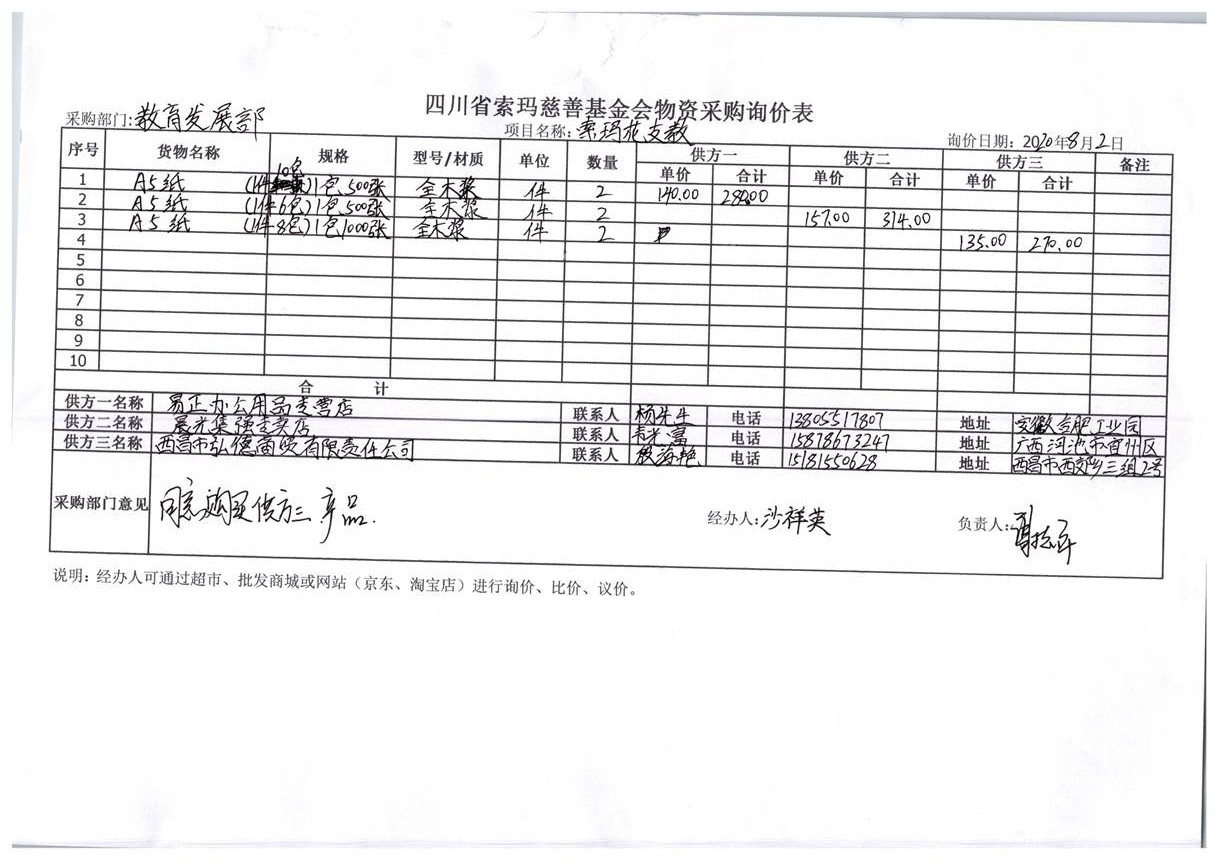 四川省索玛慈善基金会物资采购询价表
采购部门:教育发展部 项目名称:索玛花支教 询价日期: 2020年8月2日
序号 货物名称 规格 型号/材质 单位 数量 供方一 供方二 供方三 备注
单价 合计 单价 合计 单价 合计
1 A5纸 (1件10包)1包500张 全木浆 件 2 140.00 280.00
2 A5纸 (1件6包)1包500张 全木浆 件 2 157.00 314.00
3 A5纸 (1件8包)1包1000张 全木浆 件 2 135.00 270.00
4
5
6
7
8
9
10
合 计
供方一名称 易正办公用品专营店 联系人 杨先生 电话 13805517807 地址 安徽合肥工业园
供方二名称 晨光集强专卖店 联系人 电话 15878673247 地址 广西河池市宜州区
供方三名称 西昌市弘德商贸有限责任公司 联系人 电话 15181550628 地址 西昌市西郊乡三组2号
采购部门意见 同意购买供方三产品. 经办人:沙祥英 负责人:
说明：经办人可通过超市、批发商城或网站（京东、淘宝店）进行询价、比价、议价。